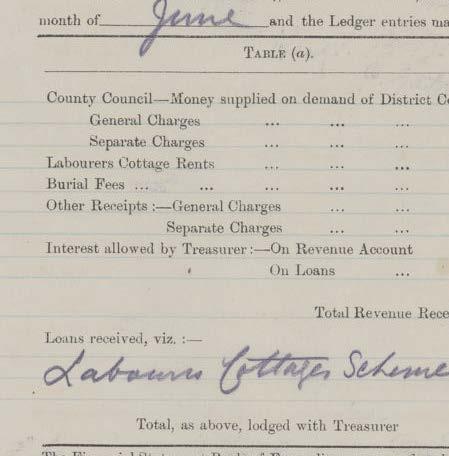 month of June and the Ledger entries ma
TABLE (a).
County Council—Money supplied on demand of District Co
General Charges ... ... ...
Separate Charges ... ... ...
Labourers Cottage Rents ... ... ...
Burial Fees ... ... ... ... ...
Other Receipts :—General Charges ... ...
Separate Charges ... ...
Interest allowed by Treasurer :—On Revenue Account
On Loans ...
Total Revenue Rece
Loans received, viz. :—
Labourers Cottages Scheme
Total, as above, lodged with Treasurer